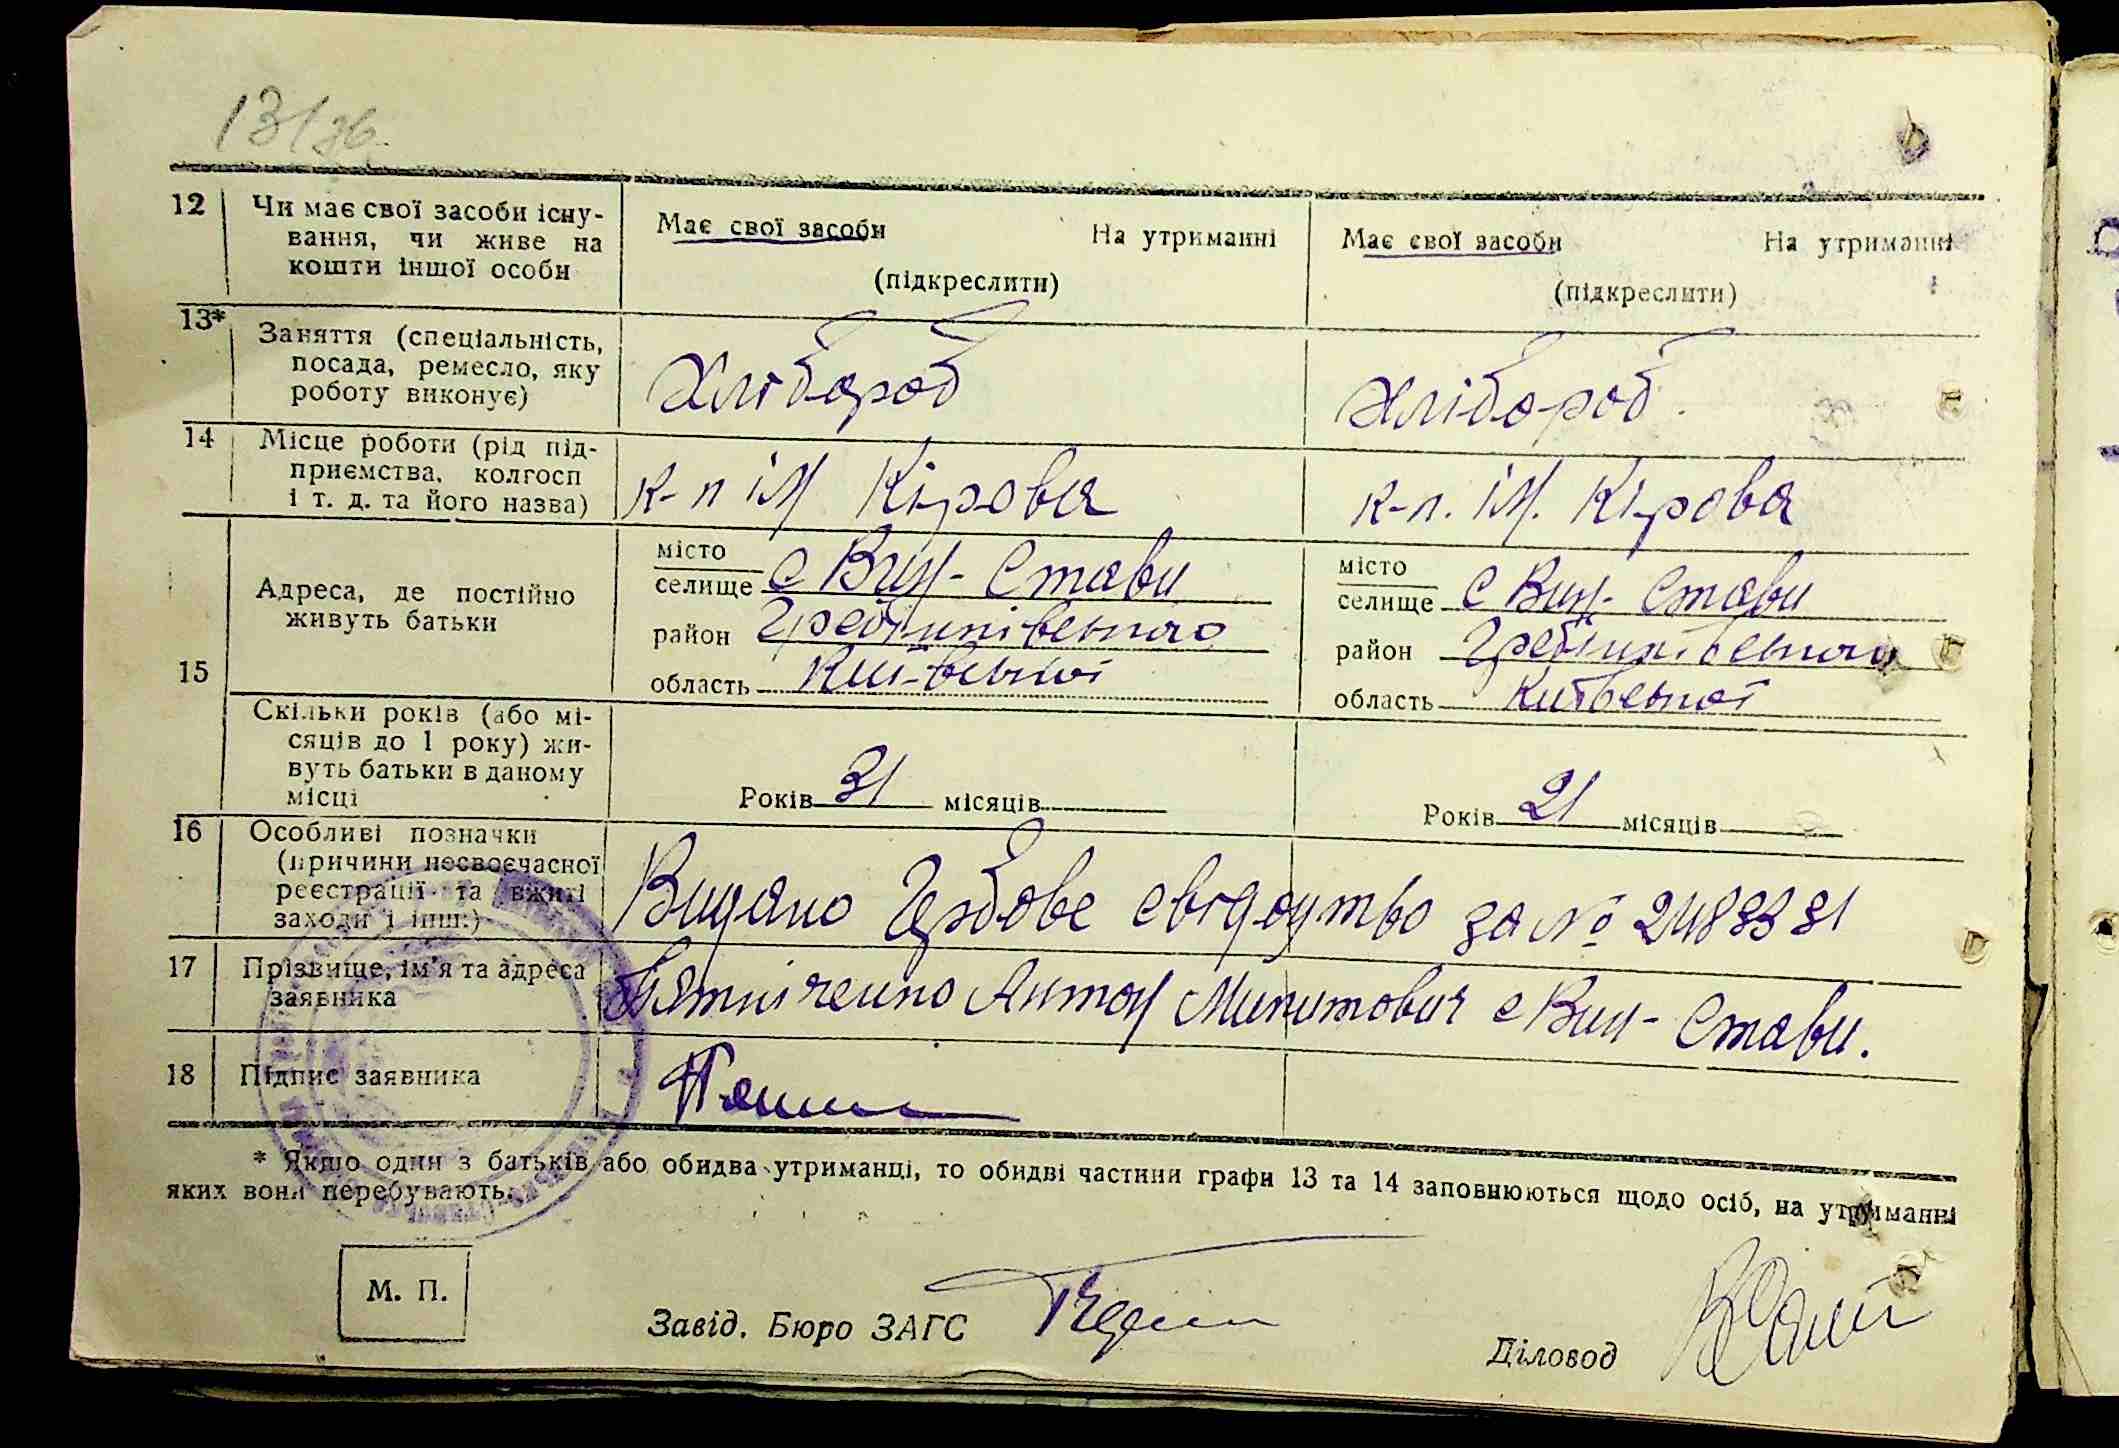 13/зв.
12 Чи має свої засоби існу-
вання, чи живе на
кошти іншої особи
Має свої засоби На утриманні
(підкреслити)
Має свої засоби На утриманні
(підкреслити)
13* Заняття (спеціальність,
посада, ремесло, яку
роботу виконує)
Хлібороб
Хлібороб.
14 Місце роботи (рід під-
приємства, колгосп
і т. д. та його назва)
к-п ім Кірова
к-п. ім. Кірова
15 Адреса, де постійно
живуть батьки
місто
селище с Вин-Стави
район Гребінківського
область Київської
місто
селище с Вин-Стави
район Гребінківського
область Київської
Скільки років (або мі-
сяців до 1 року) жи-
вуть батьки в даному
місці
Років 31 місяців
Років 21 місяців
16 Особливі позначки
(причини несвоєчасної
реєстрації та вжиті
заходи і інш.)
Видано Гербове свідоцтво за №
17 Прізвище, ім'я та адреса
заявника
Антон Микитович с Вин-Стави.
18 Підпис заявника
* Якщо один з батьків або обидва утриманці, то обидві частини графи 13 та 14 заповнюються щодо осіб, на утриманні
яких вони перебувають.
М. П.
Завід. Бюро ЗАГС
Діловод